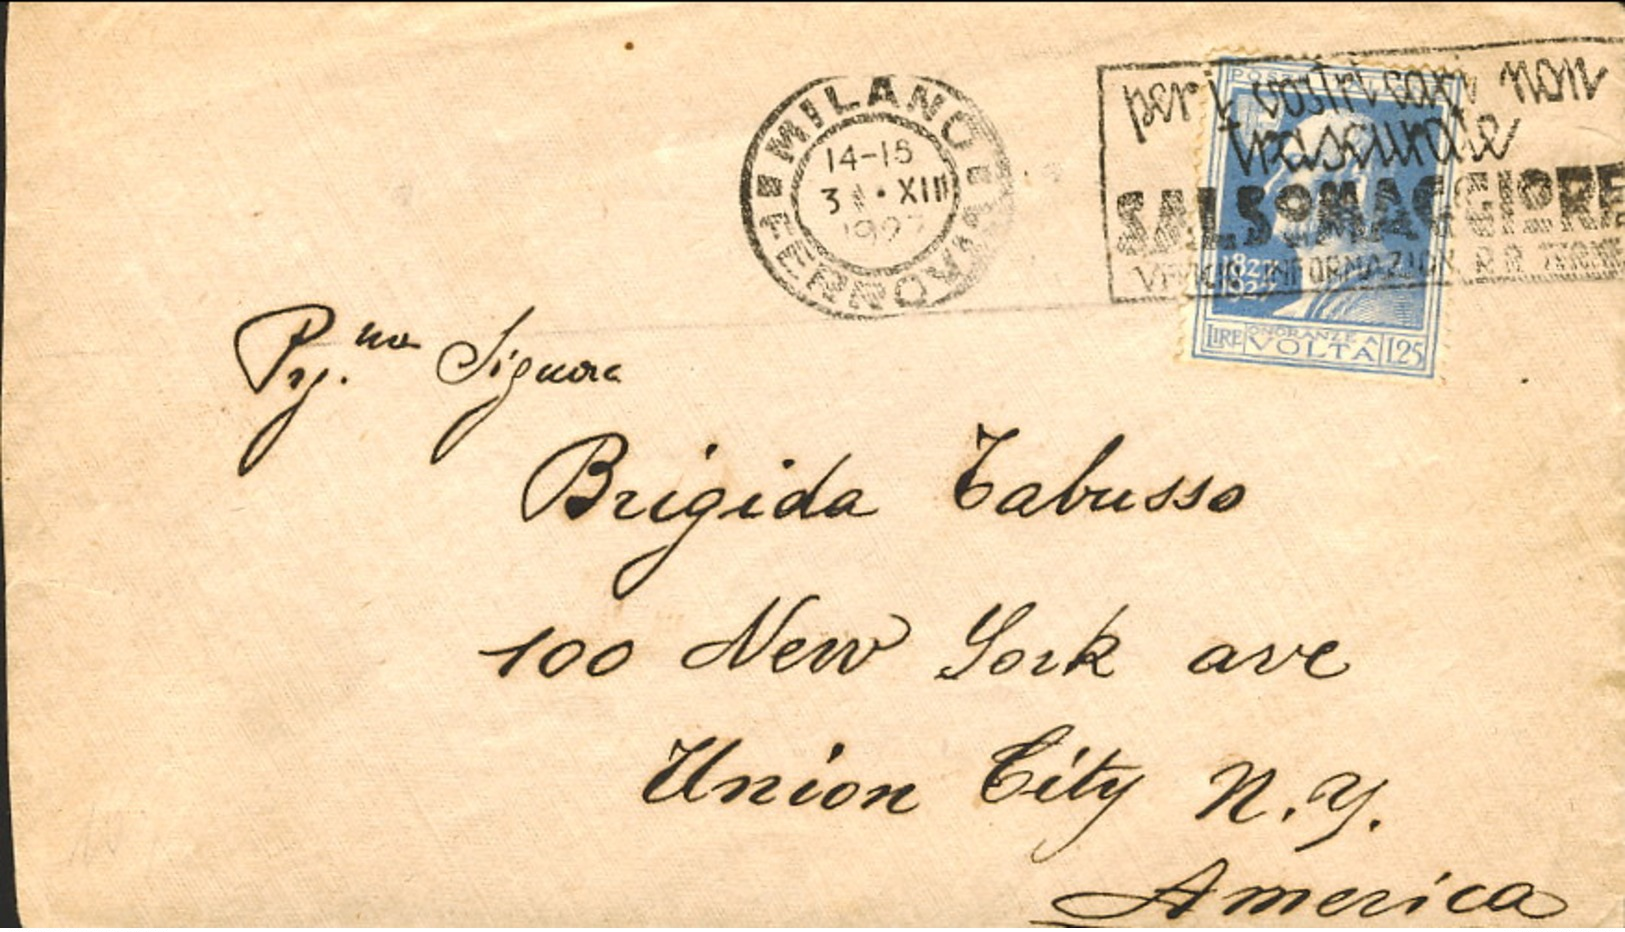 MILANO
14-15
31·XII
1927
FERROVIA
per i vostri capi non
trascurate
SALSOMAGGIORE
INFORMAZIONI R.R. TERME
1827
1927
LIRE ONORANZE A VOLTA 1,25
Pr.ma Signora
Brigida Tabusso
100 New York ave
Union City N.Y.
America